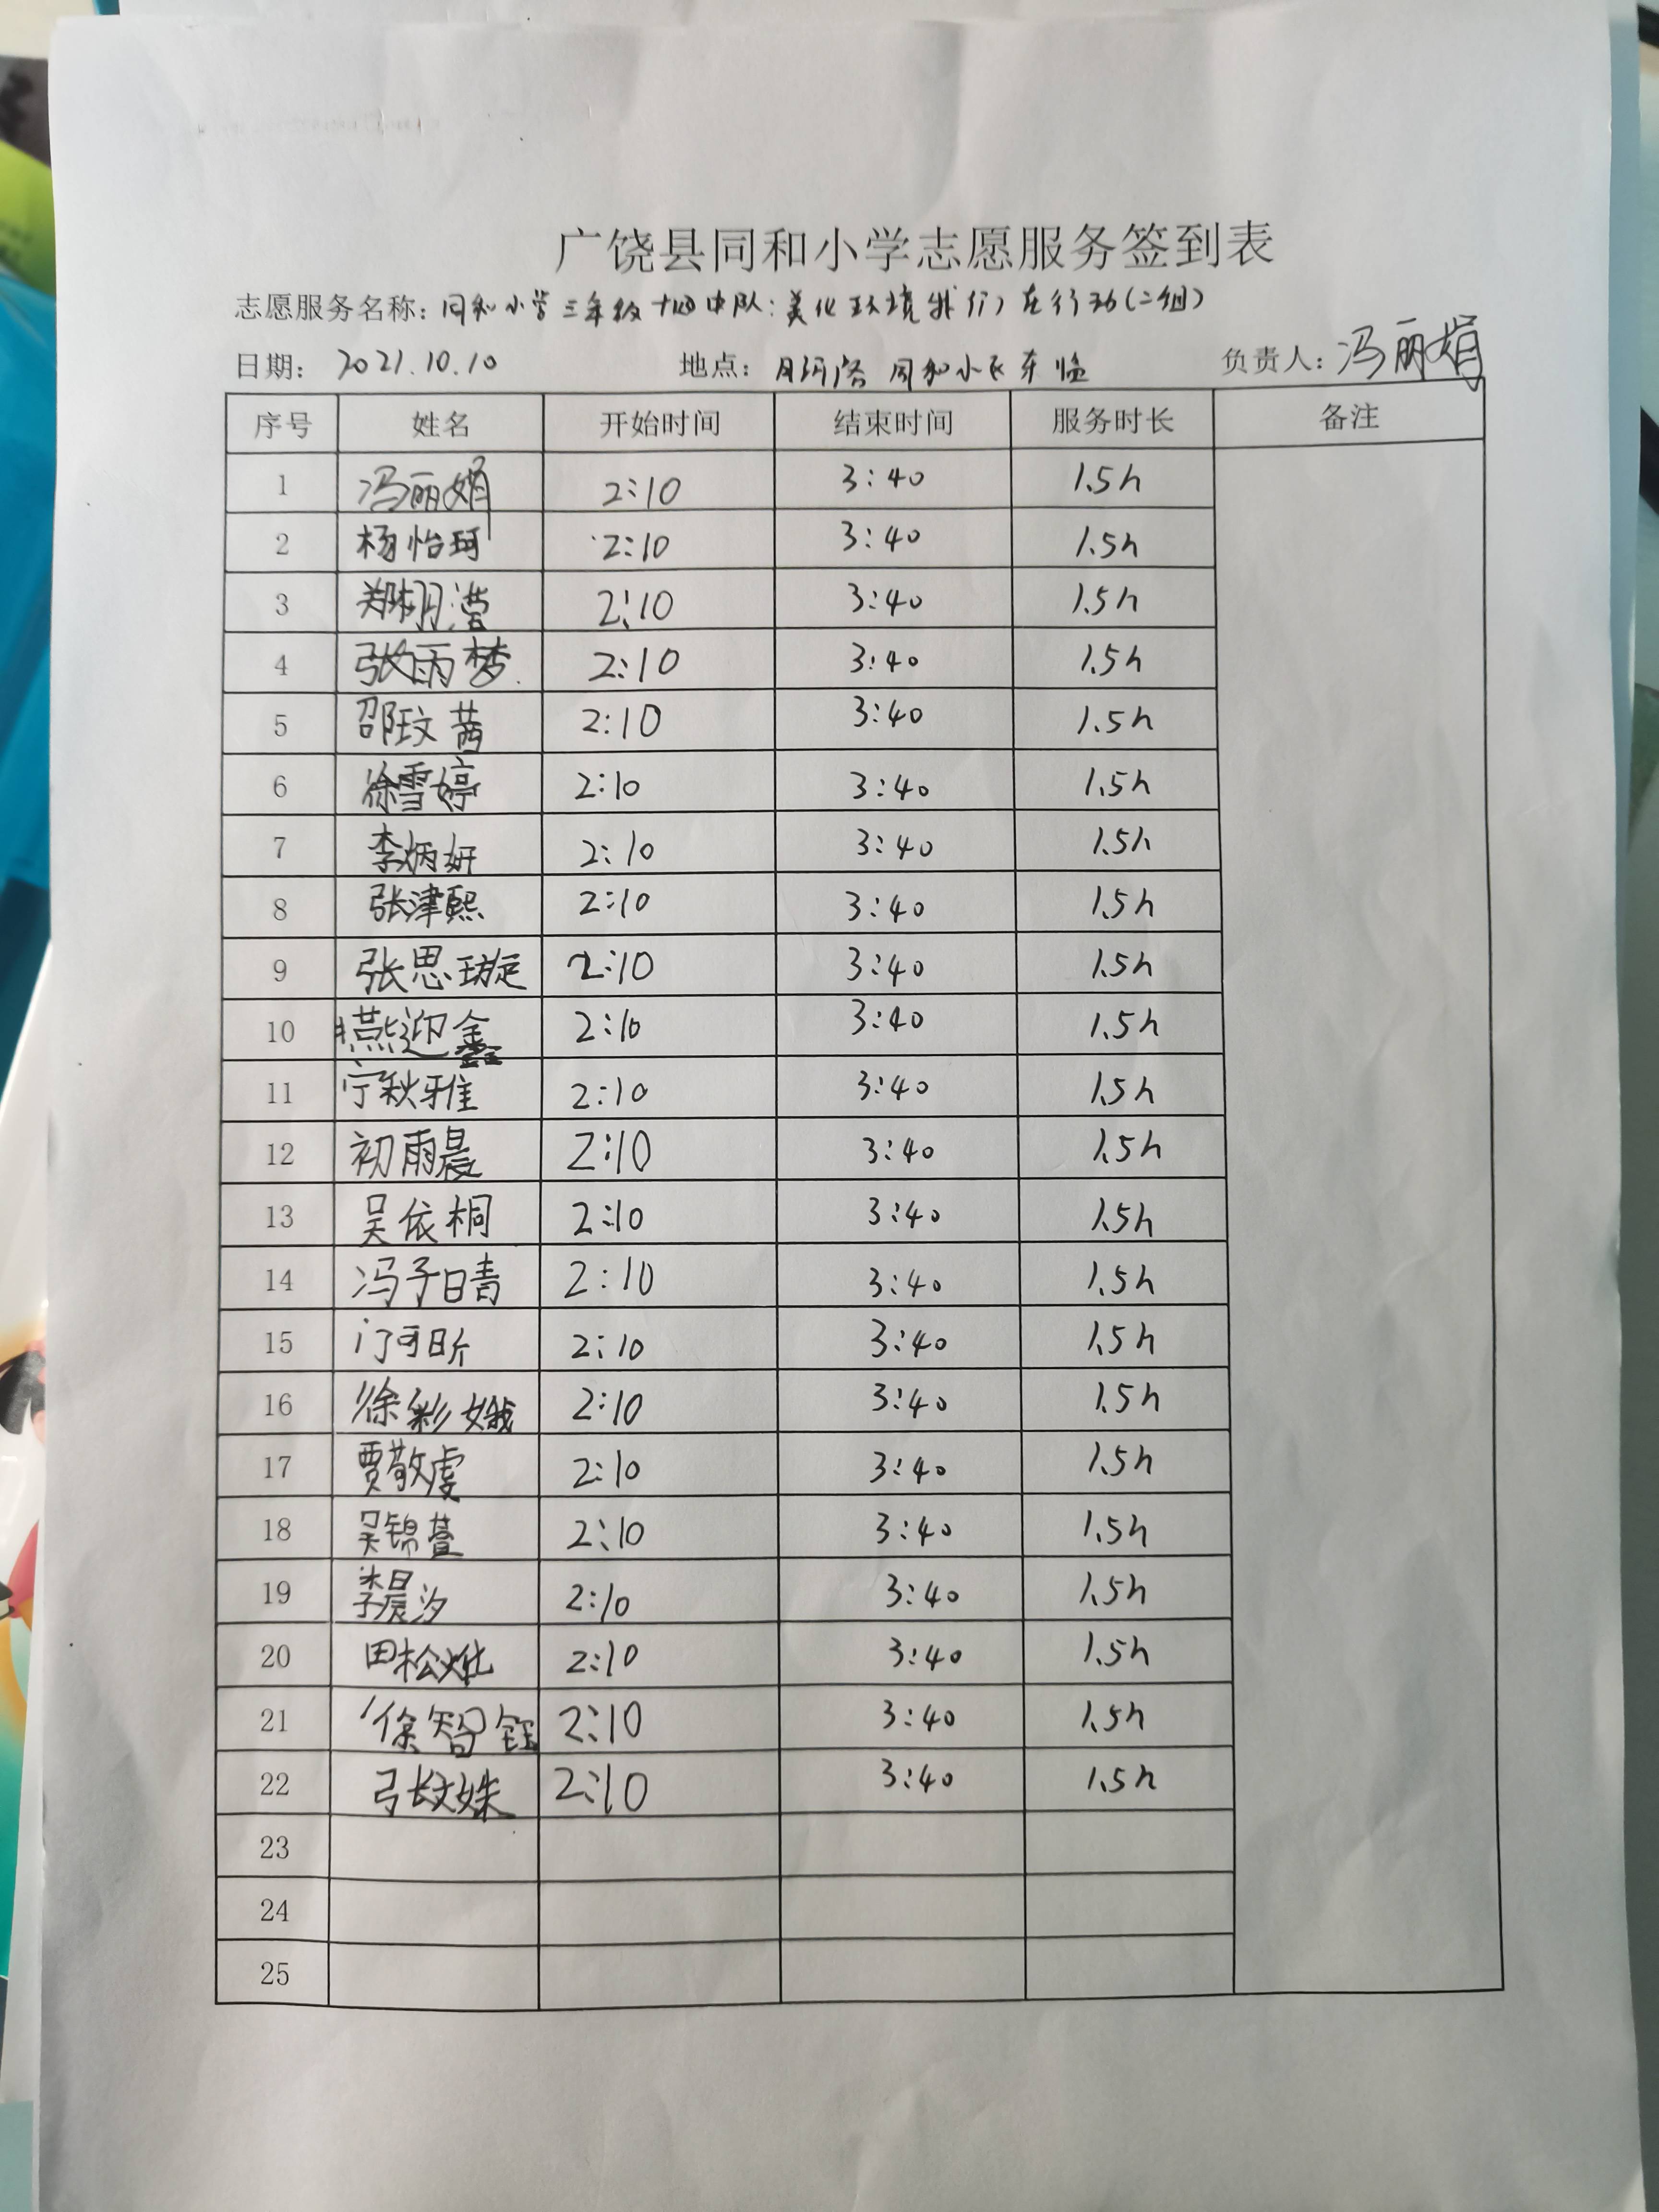 广饶县同和小学志愿服务签到表
志愿服务名称：同和小学三年级十四中队：美化环境我们在行动(二组)
日期： 2021.10.10 地点：月河路 同和小区东临 负责人：冯丽娟
序号 姓名 开始时间 结束时间 服务时长 备注
1 冯丽娟 2:10 3:40 1.5h
2 杨怡珂 2:10 3:40 1.5h
3 郑翔滢 2:10 3:40 1.5h
4 张雨梦 2:10 3:40 1.5h
5 邵玟茜 2:10 3:40 1.5h
6 徐雪婷 2:10 3:40 1.5h
7 李炳妍 2:10 3:40 1.5h
8 张津熙 2:10 3:40 1.5h
9 张思璇 2:10 3:40 1.5h
10 燕迎鑫 2:10 3:40 1.5h
11 宁秋雅 2:10 3:40 1.5h
12 初雨晨 2:10 3:40 1.5h
13 吴依桐 2:10 3:40 1.5h
14 冯子晴 2:10 3:40 1.5h
15 门可昕 2:10 3:40 1.5h
16 徐彩娥 2:10 3:40 1.5h
17 贾敬虔 2:10 3:40 1.5h
18 吴锦萱 2:10 3:40 1.5h
19 李晨汐 2:10 3:40 1.5h
20 田松灿 2:10 3:40 1.5h
21 徐智钰 2:10 3:40 1.5h
22 张文姝 2:10 3:40 1.5h
23
24
25